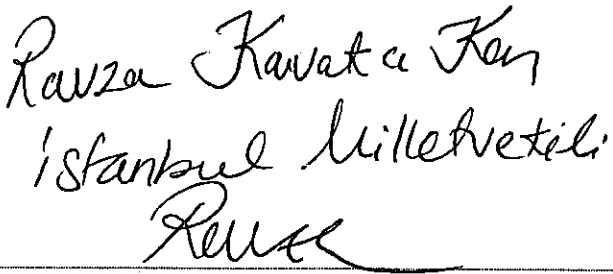 Ravza Kavakcı Kan
İstanbul Milletvekili